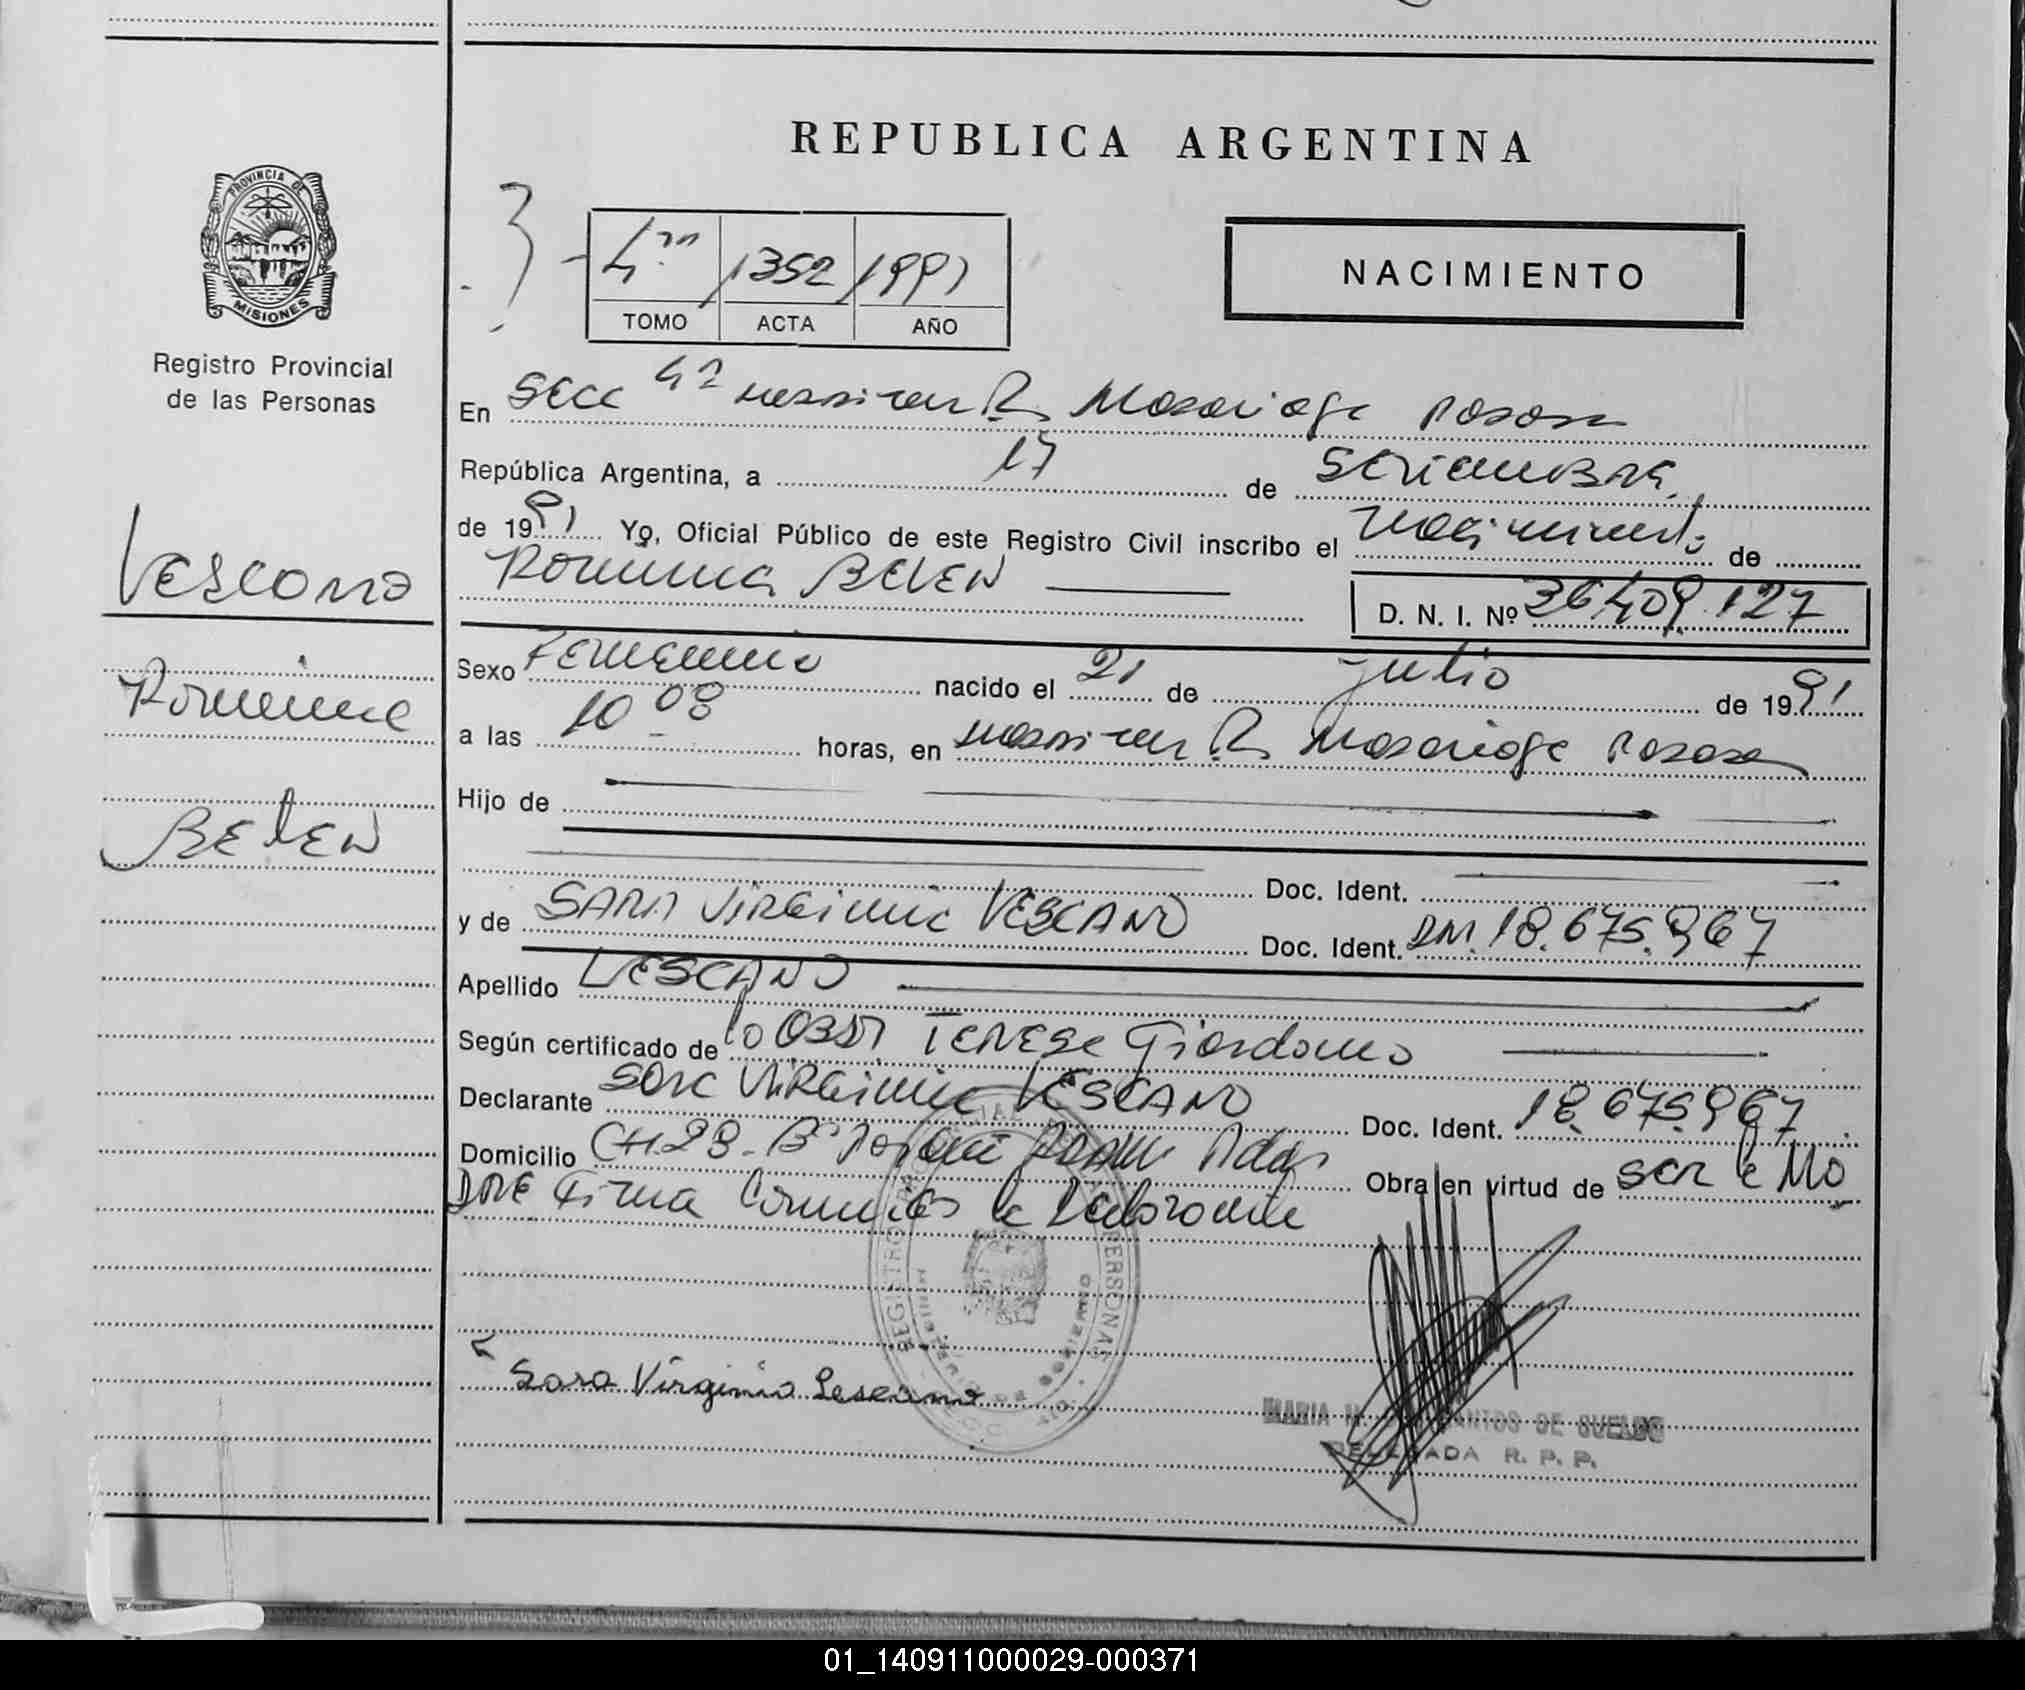 REPUBLICA ARGENTINA
PROVINCIA DE
MISIONES
Registro Provincial
de las Personas
4to 1352 1991
TOMO ACTA AÑO
NACIMIENTO
En Secc 4ª R. Posadas
República Argentina, a 17 de SETIEMBRE
de 1991 Yo, Oficial Público de este Registro Civil inscribo el nacimiento de
Romina BELEN D. N. I. Nº 36.409.127
LESCANO
Romina
BELEN
Sexo Femenino nacido el 21 de Julio de 1991
a las 10 08 horas, en R. Posadas
Hijo de
Doc. Ident.
y de SARA VIRGINIA LESCANO Doc. Ident. DNI. 18.675.967
Apellido LESCANO
Según certificado de la Obst TERESA Giordano
Declarante SARA VIRGINIA LESCANO Doc. Ident. 18.675.967
Domicilio CH.28. Bº Pdas Obra en virtud de SER la MA
DRE Firma la Declarante
REGISTRO PROVINCIAL DE LAS PERSONAS
MINISTERIO DE GOBIERNO
Sara Virginia Lescano
MARIA M. SANTOS DE SUELDO
DELEGADA R. P. P.
01_140911000029-000371